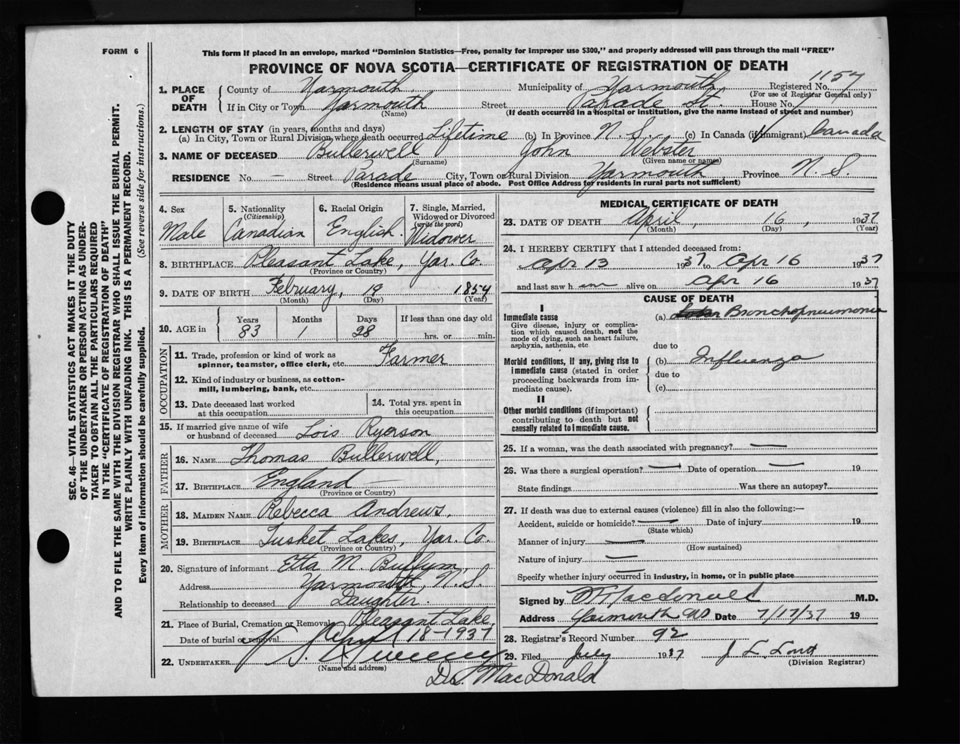 FORM 6
This form if placed in an envelope, marked "Dominion Statistics—Free, penalty for improper use $300," and properly addressed will pass through the mail "FREE"
PROVINCE OF NOVA SCOTIA—CERTIFICATE OF REGISTRATION OF DEATH
SEC. 46—VITAL STATISTICS ACT MAKES IT THE DUTY
OF THE UNDERTAKER OR PERSON ACTING AS UNDER-
TAKER TO OBTAIN ALL THE PARTICULARS REQUIRED
IN THE "CERTIFICATE OF REGISTRATION OF DEATH"
AND TO FILE THE SAME WITH THE DIVISION REGISTRAR WHO SHALL ISSUE THE BURIAL PERMIT.
WRITE PLAINLY WITH UNFADING INK. THIS IS A PERMANENT RECORD.
Every item of information should be carefully supplied. (See reverse side for instructions.)
1. PLACE OF DEATH County of Yarmouth Municipality of Yarmouth Registered No. 1157
(For use of Registrar General only)
If in City or Town Yarmouth (Name) Street Parade St. House No.
(If death occurred in a hospital or institution, give the name instead of street and number)
2. LENGTH OF STAY (in years, months and days)
(a) In City, Town or Rural Division where death occurred Lifetime (b) In Province N.S. (c) In Canada (if immigrant) Canada
3. NAME OF DECEASED Bullerwell John Webster
(Surname) (Given name or names)
RESIDENCE No. — Street Parade City, Town or Rural Division Yarmouth Province N.S.
(Residence means usual place of abode. Post Office Address for residents in rural parts not sufficient)
4. Sex Male
5. Nationality (Citizenship) Canadian
6. Racial Origin English
7. Single, Married, Widowed or Divorced (write the word) Widower
8. BIRTHPLACE Pleasant Lake, Yar. Co.
(Province or Country)
9. DATE OF BIRTH February, 19 1854
(Month) (Day) (Year)
10. AGE in Years 83 Months 1 Days 28 If less than one day old hrs. or min.
OCCUPATION
11. Trade, profession or kind of work as spinner, teamster, office clerk, etc. Farmer
12. Kind of industry or business, as cotton-mill, lumbering, bank, etc.
13. Date deceased last worked at this occupation
14. Total yrs. spent in this occupation
15. If married give name of wife or husband of deceased Lois Ryerson
FATHER
16. NAME Thomas Bullerwell,
17. BIRTHPLACE England
(Province or Country)
MOTHER
18. MAIDEN NAME Rebecca Andrews.
19. BIRTHPLACE Tusket Lakes, Yar. Co.
(Province or Country)
20. Signature of informant Etta M. Buffum,
Address Yarmouth, N.S.
Relationship to deceased Daughter.
21. Place of Burial, Cremation or Removal Pleasant Lake,
Date of burial or removal April 18-1937
22. UNDERTAKER
(Name and address)
Dr. MacDonald
MEDICAL CERTIFICATE OF DEATH
23. DATE OF DEATH April 16, 1937
(Month) (Day) (Year)
24. I HEREBY CERTIFY that I attended deceased from:
Apr 13 1937 to Apr 16 1937
and last saw him alive on Apr 16 1937
CAUSE OF DEATH
I
Immediate cause
Give disease, injury or complication which caused death, not the mode of dying, such as heart failure, asphyxia, asthenia, etc
(a) Lobar Bronchopneumonia
due to
Morbid conditions, if any, giving rise to immediate cause (stated in order proceeding backwards from immediate cause).
(b) Influenza
due to
(c)
II
Other morbid conditions (if important) contributing to death but not causally related to immediate cause.
25. If a woman, was the death associated with pregnancy? —
26. Was there a surgical operation? — Date of operation — 19
State findings Was there an autopsy?
27. If death was due to external causes (violence) fill in also the following:—
Accident, suicide or homicide? — Date of injury 19
(State which)
Manner of injury —
(How sustained)
Nature of injury —
Specify whether injury occurred in industry, in home, or in public place
Signed by Macdonald M.D.
Address Yarmouth NS Date 7/17/37 19
28. Registrar's Record Number 92
29. Filed July 1937 J L Lord
(Division Registrar)